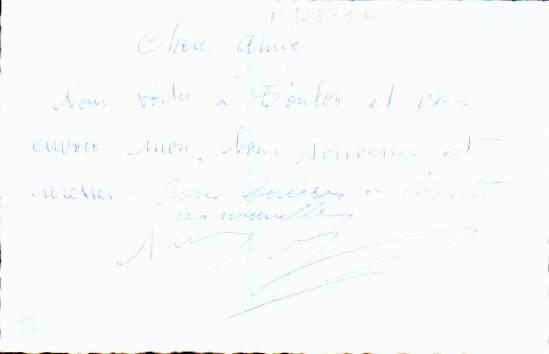 F 12873 D
Chere amie
Nous voila a Toulon et vous
envoie mon bons souvenirs et
caresses - Bons baisers a bientot
des nouvelles